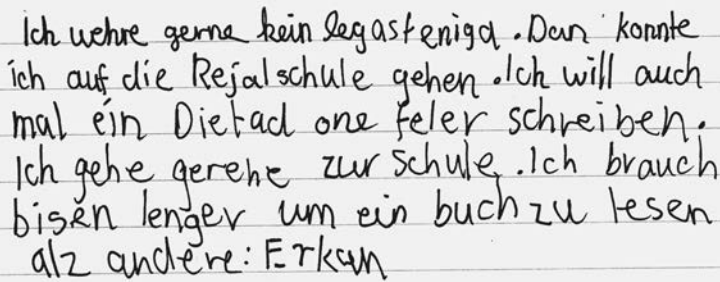 Ich wehre gerne kein legasteniga. Dan konnte
ich auf die Rejalschule gehen. Ich will auch
mal ein Dietad one feler schreiben.
Ich gehe gerehe zur schule. Ich brauch
bisen lenger um ein buch zu lesen
alz andere: Erkan